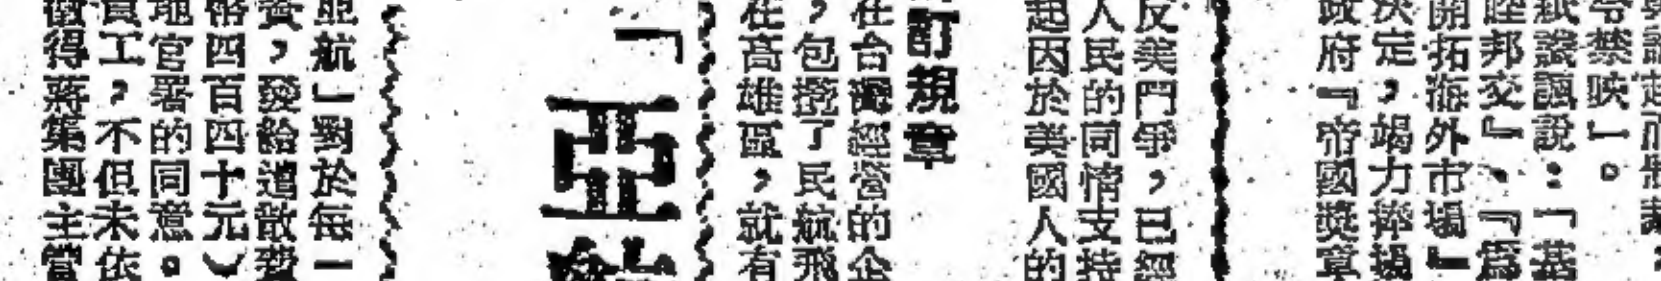 令禁映」。
紙譏諷說：「基
睦邦交』、『爲
開拓海外市場』
決定，竭力捧場
政府『帝國獎章
反美鬥爭，已經
人民的同情支持
起因於美國人的
訂規章
在台灣經營的企
，包攬了民航飛
在高雄區，就有
「亞
航」對於每一
資，發給遣散費
幣四百四十元）
地官署的同意。
員工，不但未依
徵得蔣集團主管